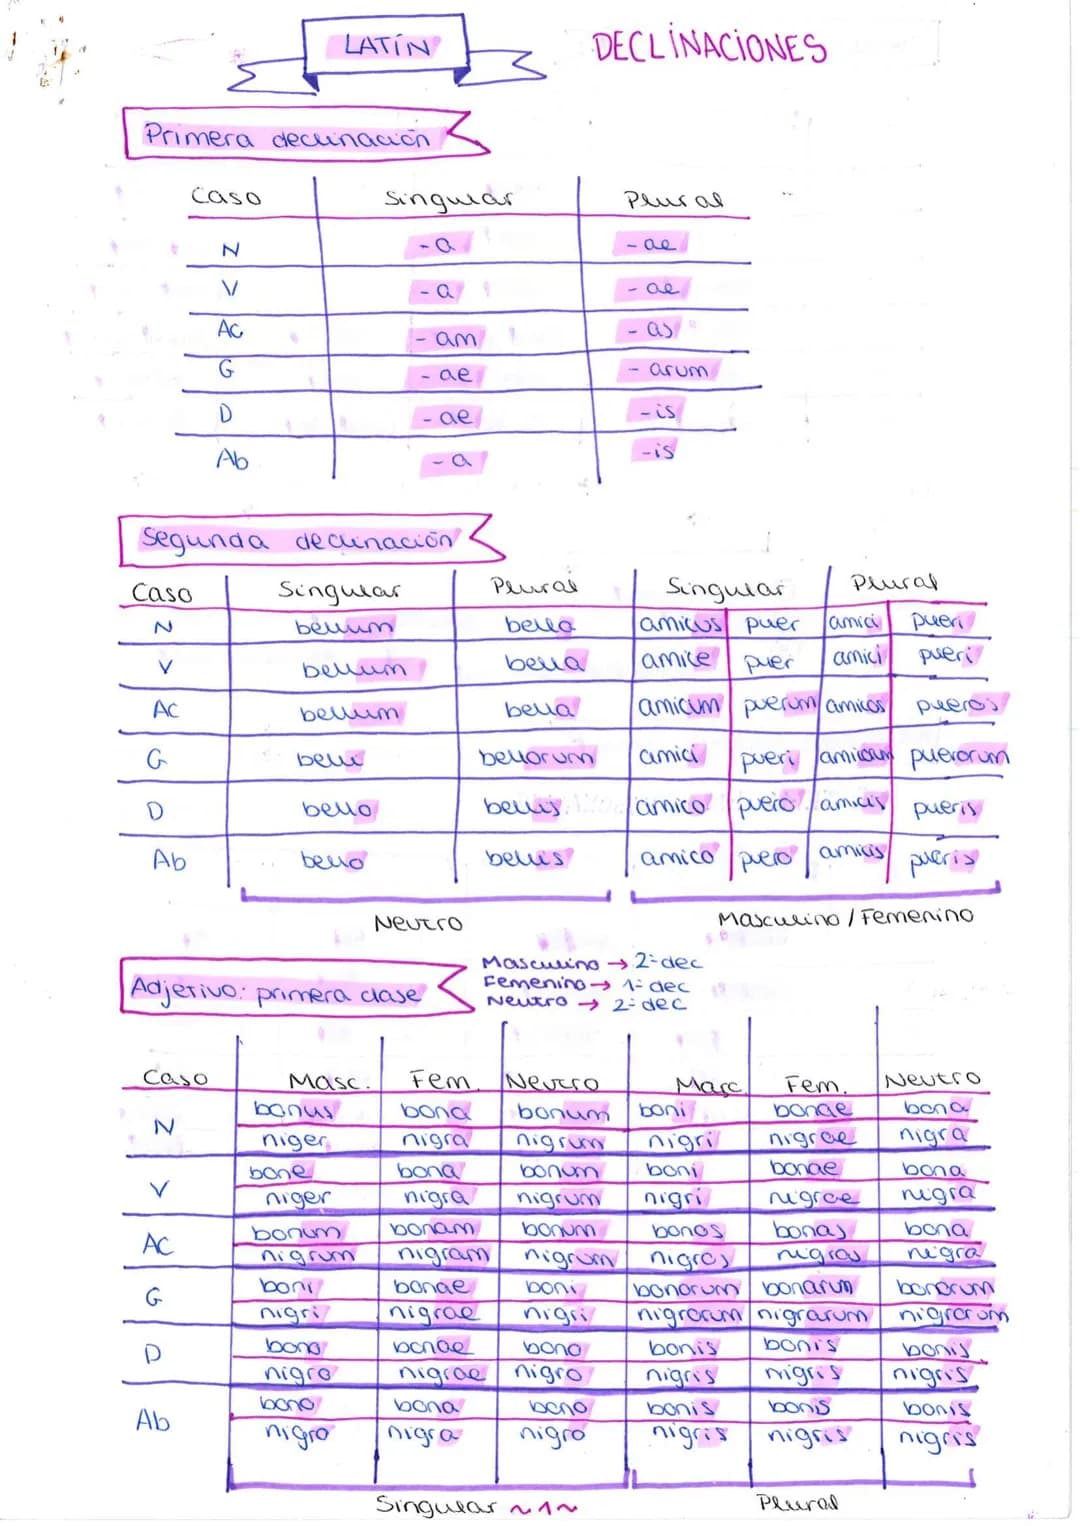 LATÍN
DECLINACIONES
Primera declinación
Caso Singular Plural
N -a -ae
V -a -ae
AC -am -as
G -ae -arum
D -ae -is
Ab -a -is
Segunda declinación
Caso Singular Plural Singular Plural
N bellum bella amicus puer amici pueri
V bellum bella amice puer amici pueri
AC bellum bella amicum puerum amicos pueros
G belli bellorum amici pueri puerorum
D bello bellis amico puero amicis pueris
Ab bello bellis amico puero amicis pueris
Neutro Masculino / Femenino
Adjetivo: primera clase
Masculino → 2ª dec
Femenino → 1ª dec
Neutro → 2ª dec
Caso Masc. Fem. Neutro Masc. Fem. Neutro
N bonus bona bonum boni bonae bona
niger nigra nigrum nigri nigrae nigra
V bone bona bonum boni bonae bona
niger nigra nigrum nigri nigrae nigra
AC bonum bonam bonum bonos bonas bona
nigrum nigram nigrum nigros nigras nigra
G boni bonae boni bonorum bonarum bonorum
nigri nigrae nigri nigrorum nigrarum nigrorum
D bono bonae bono bonis bonis bonis
nigro nigrae nigro nigris nigris nigris
Ab bono bona bono bonis bonis bonis
nigro nigra nigro nigris nigris nigris
Singular ~1~ Plural